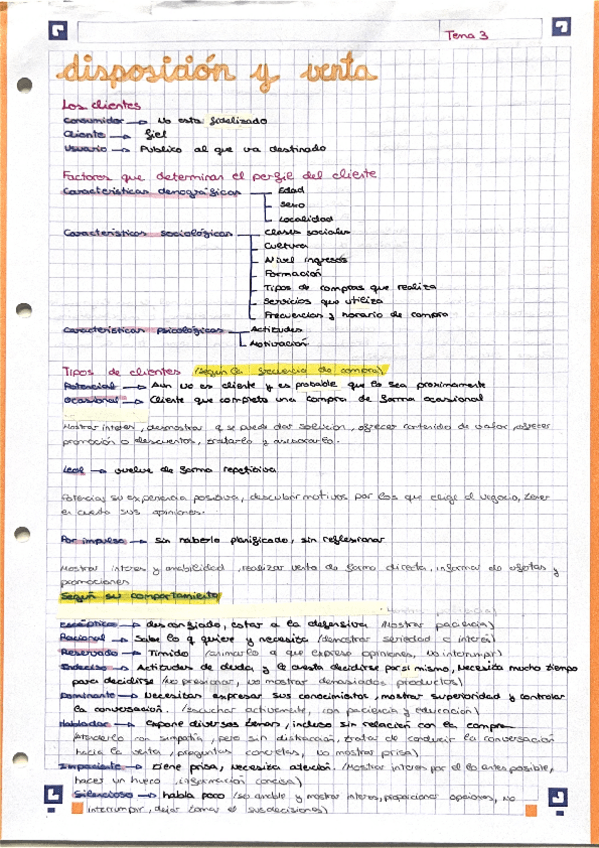 Tema 3
disposición y venta
Los clientes
Consumidor → No esta fidelizado
Cliente → fiel
Usuario → Publico al que va destinado
Factores que determinan el perfil del cliente
Características demográficas — Edad
Sexo
Localidad
Características sociológicas — Clases sociales
Cultura
Nivel ingresos
Formación
Tipos de compras que realiza
Servicios que utiliza
Frecuencias y horario de compra
Características psicológicas — Actitudes
Motivación
Tipos de clientes (según la frecuencia de compra)
Potencial → Aun no es cliente y es probable que lo sea proximamente
Ocasional → Cliente que completo una compra de forma ocasional
Mostrar interes, desmostrar q se puede dar solución, ofrecer contenido de valor, ofrecer
promoción o descuentos, tratarlo y asesorarlo.
Leal → vuelve de forma repetitiva
Potenciar su experiencia positiva, descubrir motivos por los que elige el negocio, tener
en cuenta sus opiniones.
Por impulso → sin haberlo planificado, sin reflexionar
Mostrar interes y amabilidad, realizar venta de forma directa, informar de ofertas y
promociones
Según su comportamiento
Escéptico → desconfiado, estar a la defensiva (Mostrar paciencia)
Racional → Sabe lo q quiere y necesita (demostrar seriedad e interés)
Reservado → Tímido (animarlo a que exprese opiniones, no interrumpir)
Indeciso → Actitudes de duda, y le cuesta decidirse por si mismo, necesita mucho tiempo
para decidirse (no presionar, no mostrar demasiados productos)
Dominante → Necesitan expresar sus conocimientos, mostrar superioridad y controlar
la conversación. (escuchar activamente, con paciencia y educación)
Hablador → Expone diversos temas, incluso sin relación con la compra
Atenderlo con simpatía, pero sin distracción, tratar de conducir la conversación
hacia la venta, preguntas concretas, no mostrar prisa)
Impaciente → tiene prisa, necesita atención. (Mostrar interes por el lo antes posible,
hacer un hueco, información concisa)
Silencioso → habla poco (ser amable y mostrar interes, proporcionar opciones, no
interrumpir, dejar tomar el sus decisiones)